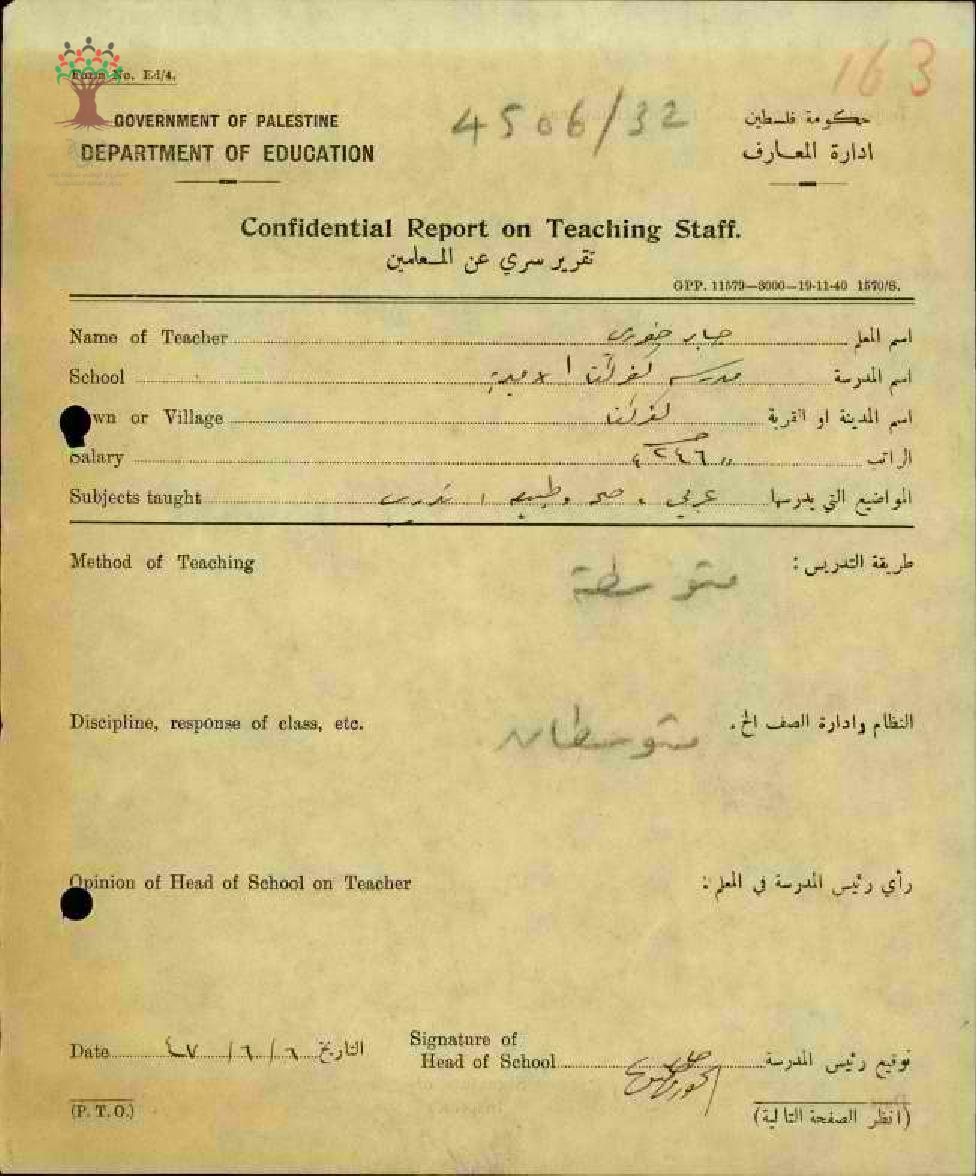 163
Form No. Ed/4.
4506/32
GOVERNMENT OF PALESTINE
حكومة فلسطين
DEPARTMENT OF EDUCATION
ادارة المعارف
Confidential Report on Teaching Staff.
تقرير سري عن المعلمين
GPP. 11579—8000—19-11-40 1570/S.
Name of Teacher صابر خوري اسم المعلم
School مدرسة كفركنا الاميرية اسم المدرسة
wn or Village كفركنا اسم المدينة او القرية
Salary ٢٤٦ الراتب
Subjects taught عربي ، صحة وطبيعة المواضيع التي يدرسها
Method of Teaching متوسطة طريقة التدريس :
Discipline, response of class, etc. متوسطان النظام وادارة الصف الخ .
Opinion of Head of School on Teacher رأي رئيس المدرسة في المعلم :
Date ٦/٦/٤٧ التاريخ
Signature of
Head of School توقيع رئيس المدرسة
(P. T. O.)
(انظر الصفحة التالية)